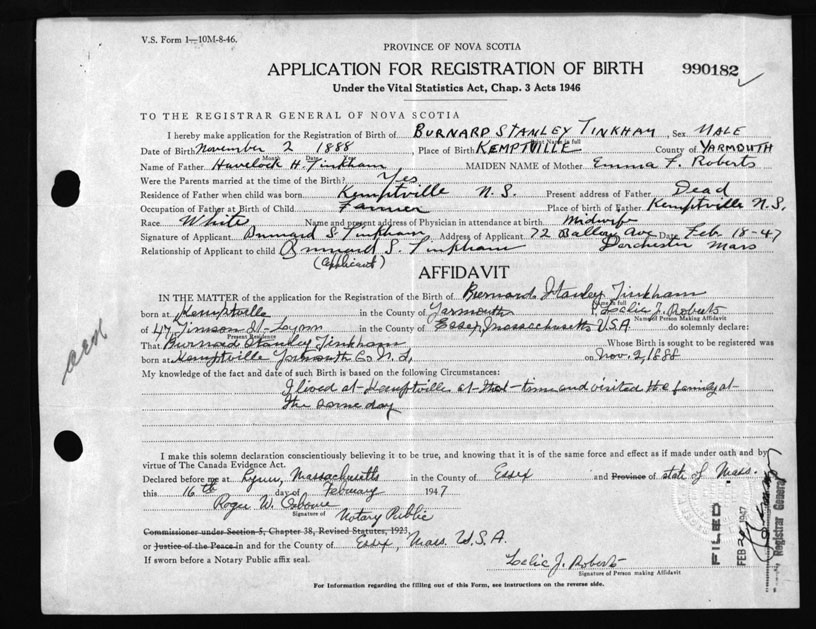 V.S. Form 1—10M-8-46.
PROVINCE OF NOVA SCOTIA
APPLICATION FOR REGISTRATION OF BIRTH 990182
Under the Vital Statistics Act, Chap. 3 Acts 1946
TO THE REGISTRAR GENERAL OF NOVA SCOTIA
I hereby make application for the Registration of Birth of BURNARD STANLEY TINKHAM, Sex MALE
Print Name in full
Date of Birth November 2 1888 Place of Birth KEMPTVILLE County of YARMOUTH
Month Date
Name of Father Havelock H. Tinkham MAIDEN NAME of Mother Emma F. Roberts
Were the Parents married at the time of the Birth? Yes
Residence of Father when child was born Kemptville N.S. Present address of Father Dead
Occupation of Father at Birth of Child Farmer Place of birth of Father Kemptville N.S.
Race White Name and present address of Physician in attendance at birth Midwife
Signature of Applicant Burnard S. Tinkham Address of Applicant 72 Ave Date Feb 18-47
Relationship of Applicant to child Burnard S. Tinkham Dorchester Mass
(Applicant)
AFFIDAVIT
IN THE MATTER of the application for the Registration of the Birth of Burnard Stanley Tinkham
Name in full
born at Kemptville in the County of Yarmouth I, Leslie J. Roberts
Name of Person Making Affidavit
of 47 Timson St-Lynn in the County of Essex, Massachusetts U.S.A do solemnly declare:
Present Residence
That Burnard Stanley Tinkham Whose Birth is sought to be registered was
born at Kemptville Yarmouth Co N.S. on Nov. 2, 1888
My knowledge of the fact and date of such Birth is based on the following Circumstances:
I lived at Kemptville at that time and visited the family at
the same day
I make this solemn declaration conscientiously believing it to be true, and knowing that it is of the same force and effect as if made under oath and by
virtue of The Canada Evidence Act.
Declared before me at Lynn, Massachusetts in the County of Essex and Province of state of Mass.
this 16th day of February 1947
Roger W. Osborne
Signature of Notary Public
Commissioner under Section 5, Chapter 38, Revised Statutes, 1923,
or Justice of the Peace in and for the County of Essex, Mass. U.S.A.
If sworn before a Notary Public affix seal.
Leslie J. Roberts
Signature of Person making Affidavit
For Information regarding the filling out of this Form, see instructions on the reverse side.
FILED
FEB 1947
Registrar General